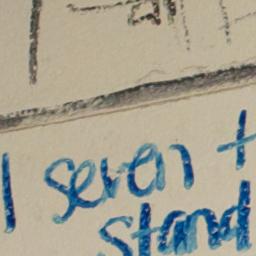 seven
stand